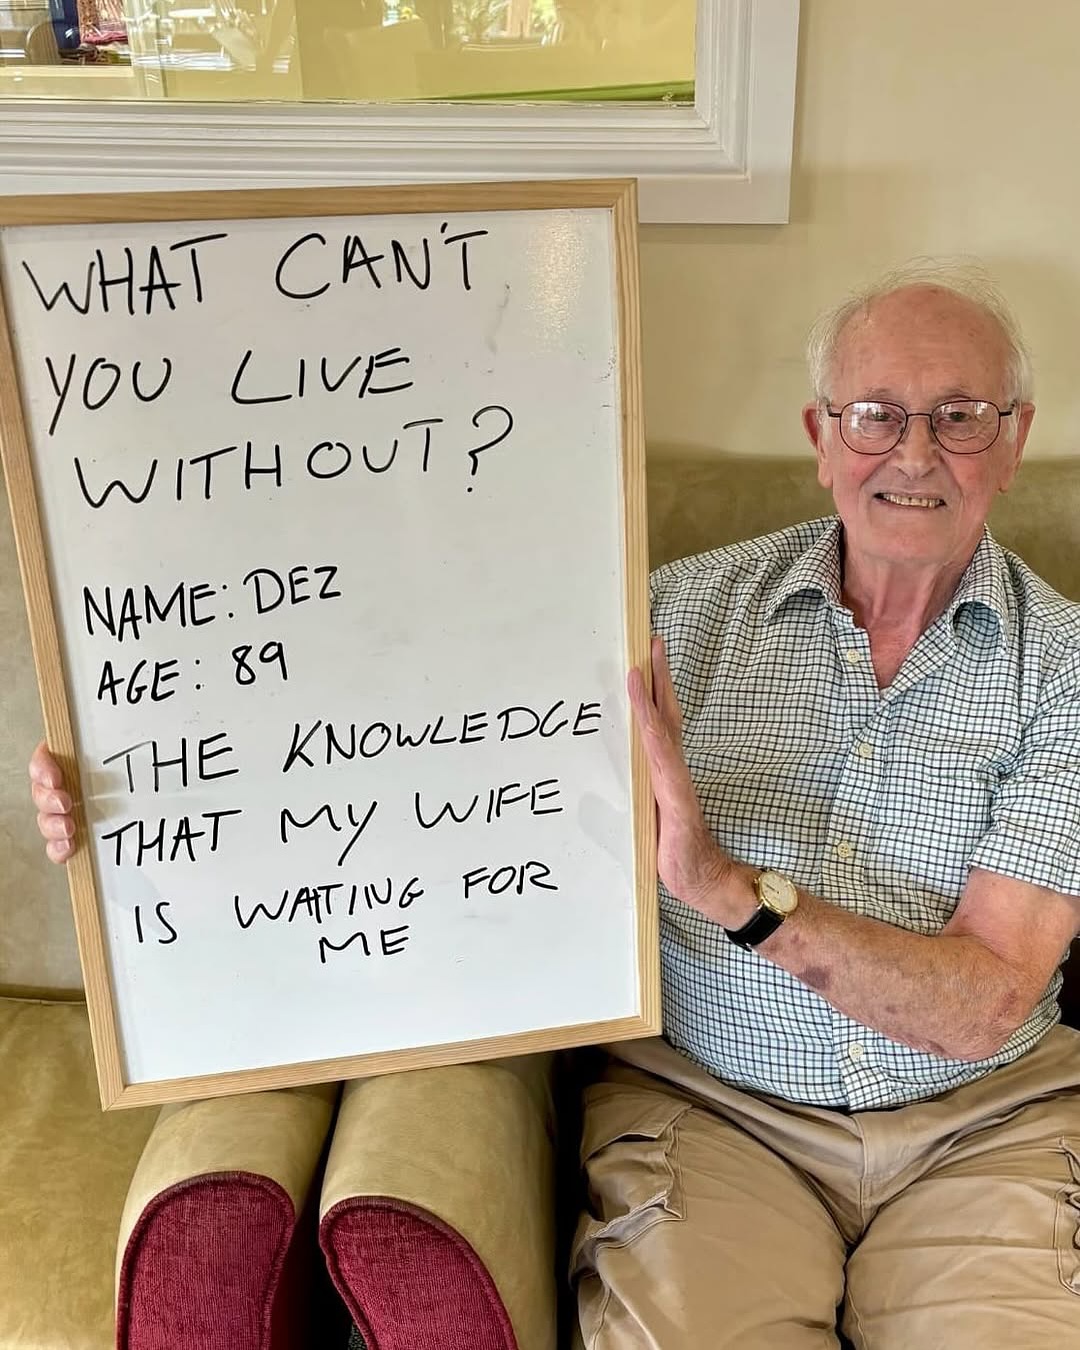 WHAT CAN'T
YOU LIVE
WITHOUT?
NAME: DEZ
AGE: 89
THE KNOWLEDGE
THAT MY WIFE
IS WAITING FOR
ME